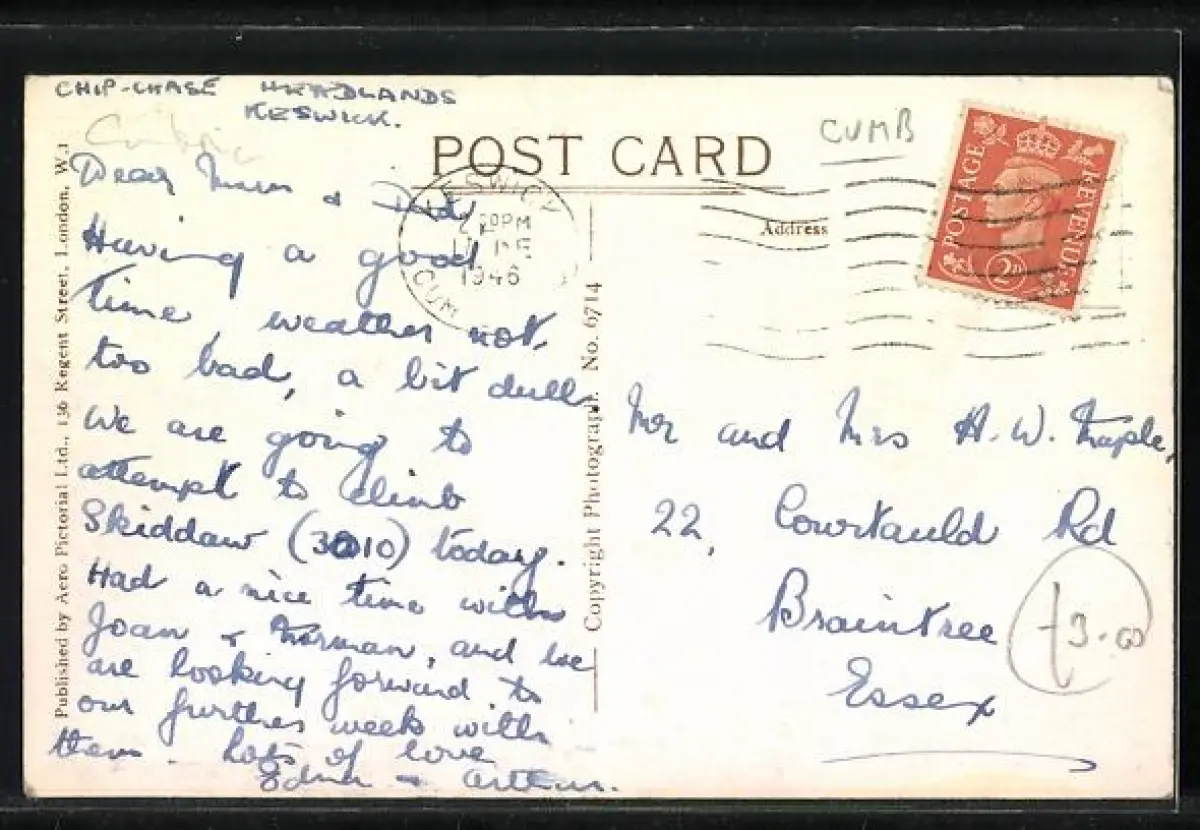 CHIP-CHASE HEADLANDS
KESWICK.
POST CARD
CUMB
Dear Mum & Dad
Having a good
time, weather not
too bad, a bit dull
We are going to
attempt to climb
Skiddaw (3010) today.
Had a nice time with
Joan & Norman, and we
are looking forward to
our further week with
them. Lots of love
Edna & Arthur.
Published by Aero Pictorial Ltd., 136 Regent Street, London, W.1
Copyright Photograph. No. 6714
KESWICK
PM
1946
CUM
Address
POSTAGE
REVENUE
2D
Mr and Mrs H. W. Maple,
22, Courtauld Rd
Braintree
Essex
£3.00